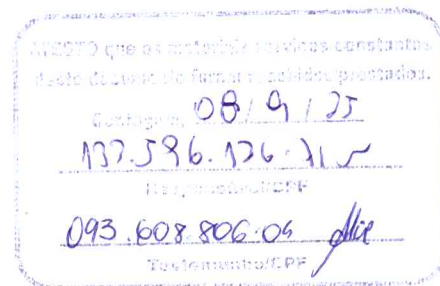 ATESTO que os materiais serviços constantes
deste documento foram recebidos prestados.
Contagem, 08 / 9 / 25
137.596.136-71
Responsável/CPF
093.608.806-04
Testemunha/CPF